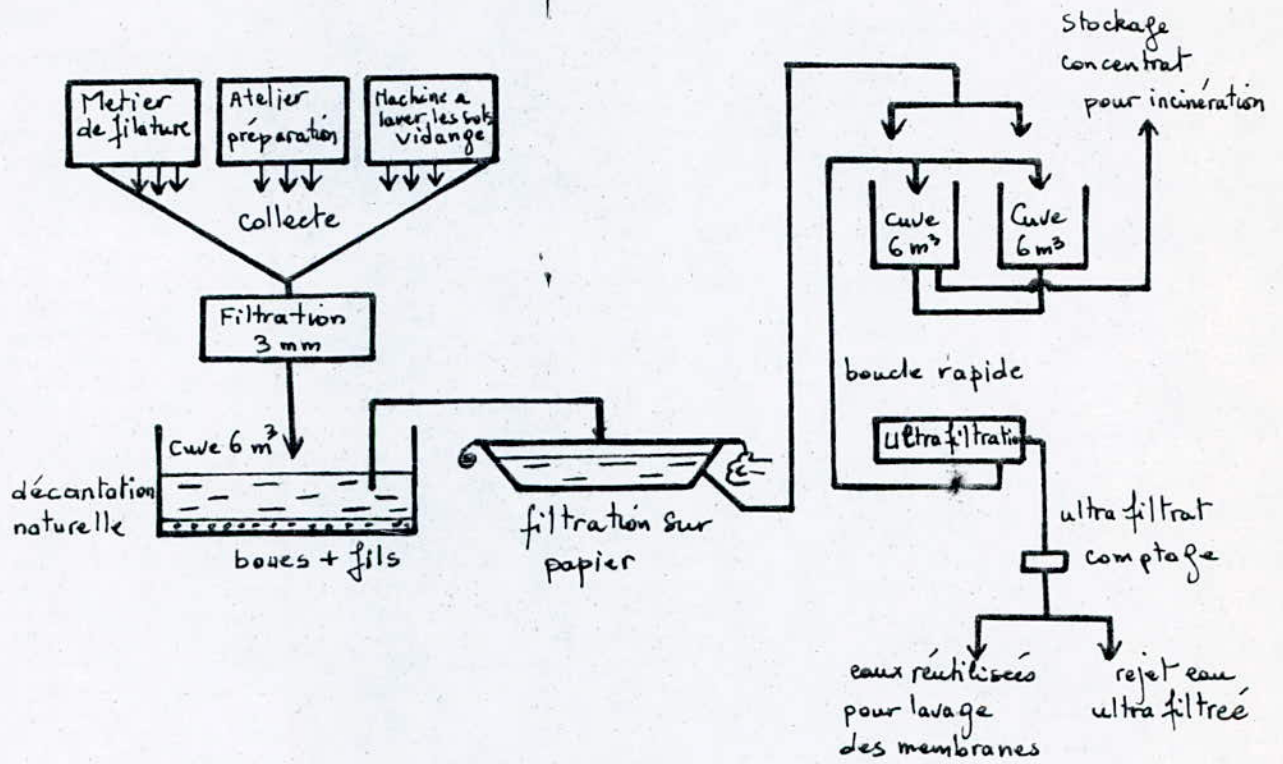 Metier
de filature
Atelier
préparation
Machine a
laver les sols
vidange
collecte
Filtration
3 mm
Cuve 6 m³
décantation
naturelle
boues + fils
filtration sur
papier
Stockage
concentrat
pour incinération
cuve
6 m³
Cuve
6 m³
boucle rapide
Ultrafiltration
ultra filtrat
comptage
eaux réutilisées
pour lavage
des membranes
rejet eau
ultra filtreé